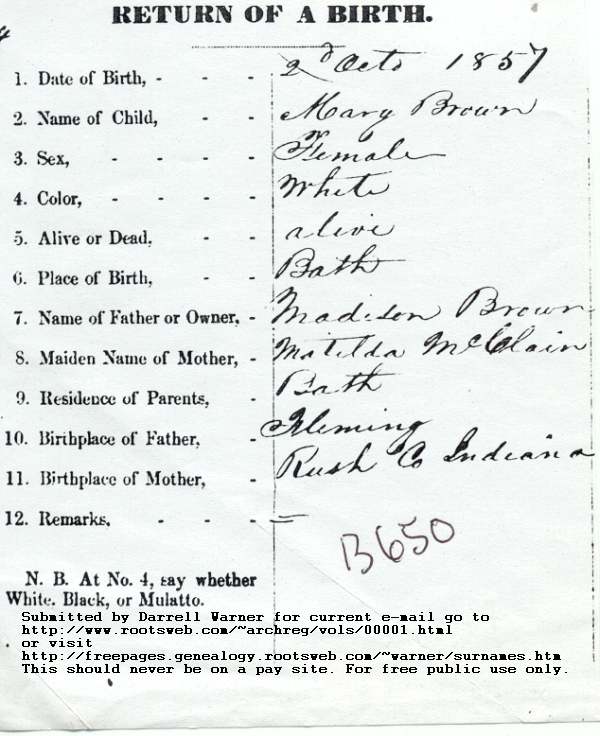 RETURN OF A BIRTH.
1. Date of Birth, - - - 2d Octo 1857
2. Name of Child, - - Mary Brown
3. Sex, - - - - Female
4. Color, - - - - White
5. Alive or Dead, - - alive
6. Place of Birth, - - Bath
7. Name of Father or Owner, - Madison Brown
8. Maiden Name of Mother, - Matilda McClain
9. Residence of Parents, - Bath
10. Birthplace of Father, - Fleming
11. Birthplace of Mother, - Rush Co Indiana
12. Remarks, - - - =
B650
N. B. At No. 4, say whether
White, Black, or Mulatto.
Submitted by Darrell Warner for current e-mail go to
http://www.rootsweb.com/~archreg/vols/00001.html
or visit
http://freepages.genealogy.rootsweb.com/~warner/surnames.htm
This should never be on a pay site. For free public use only.